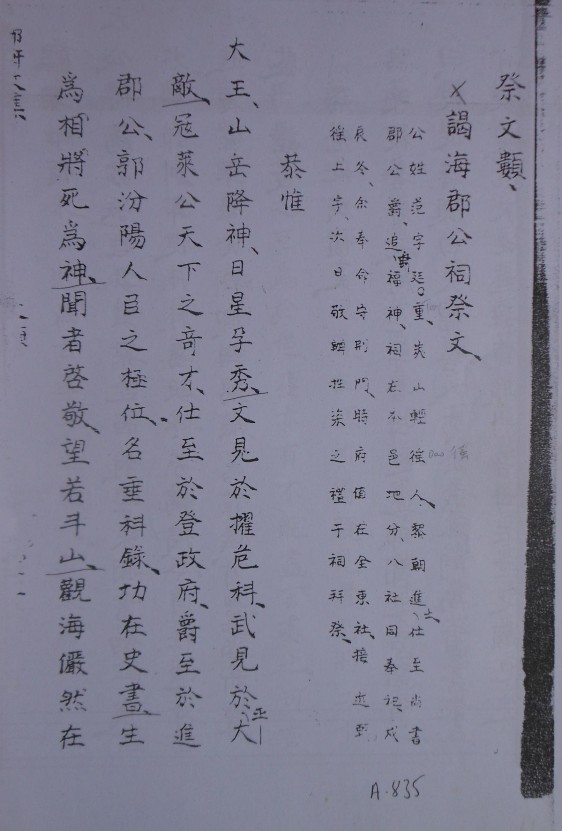 祭文類、
謁海郡公祠祭文、
公姓范字廷重莢山輕徭人、黎朝進士仕至尚書
郡公爵、追封福神、祠在不邑地分、八社同奉祀、戍
辰冬、余奉命守荊門、時府值在金東社、接近到
徭上字、次日敬辦牲粢之禮于祠拜祭、
恭惟
大王、山岳降神、日星孚秀、文見於擢危科、武見於大
敵、冠萊公天下之奇才、仕至於登政府、爵至於進
郡公、郭汾陽人臣之極位、名垂科錄、功在史書、生
為相將死為神、聞者啓敬、望若斗山、觀海儼然在
A.835